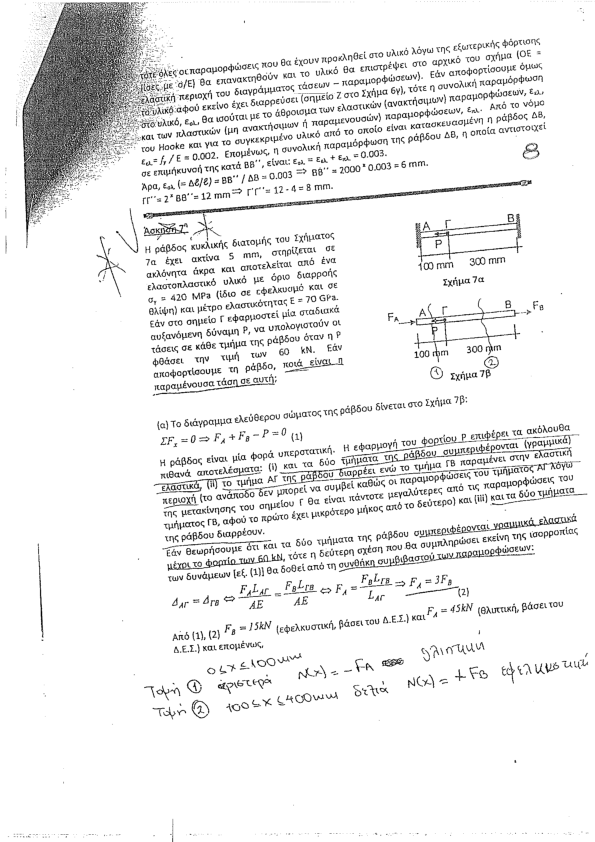 τότε όλες οι παραμορφώσεις που θα έχουν προκληθεί στο υλικό λόγω της εξωτερικής φόρτισης
(ίσες με σ/Ε) θα επανακτηθούν και το υλικό θα επιστρέψει στο αρχικό του σχήμα (ΟΕ =
ελαστική περιοχή του διαγράμματος τάσεων – παραμορφώσεων). Εάν αποφορτίσουμε όμως
το υλικό αφού εκείνο έχει διαρρεύσει (σημείο Ζ στο Σχήμα 6γ), τότε η συνολική παραμόρφωση
στο υλικό, εολ. θα ισούται με το άθροισμα των ελαστικών (ανακτήσιμων) παραμορφώσεων, εελ.
και των πλαστικών (μη ανακτήσιμων ή παραμενουσών) παραμορφώσεων, επλ. Από το νόμο
του Hooke και για το συγκεκριμένο υλικό από το οποίο είναι κατασκευασμένη η ράβδος ΔΒ,
εελ.= fy / E = 0.002. Επομένως, η συνολική παραμόρφωση της ράβδου ΔΒ, η οποία αντιστοιχεί
σε επιμήκυνσή της κατά ΒΒ΄΄, είναι: εολ. = εελ. + επλ. = 0.003.
Άρα, εολ. (= Δℓ/ℓ) = ΒΒ΄΄ / ΔΒ = 0.003 ⇒ ΒΒ΄΄ = 2000 * 0.003 = 6 mm.
ΓΓ΄΄= 2 * ΒΒ΄΄= 12 mm ⇒ Γ΄Γ΄΄= 12 - 4 = 8 mm.
8
Άσκηση 7η
Η ράβδος κυκλικής διατομής του Σχήματος
7α έχει ακτίνα 5 mm, στηρίζεται σε
ακλόνητα άκρα και αποτελείται από ένα
ελαστοπλαστικό υλικό με όριο διαρροής
στ = 420 MPa (ίδιο σε εφελκυσμό και σε
θλίψη) και μέτρο ελαστικότητας E = 70 GPa.
Εάν στο σημείο Γ εφαρμοστεί μία σταδιακά
αυξανόμενη δύναμη P, να υπολογιστούν οι
τάσεις σε κάθε τμήμα της ράβδου όταν η P
φθάσει την τιμή των 60 kN. Εάν
αποφορτίσουμε τη ράβδο, ποιά είναι η
παραμένουσα τάση σε αυτή;
A Γ B
P
100 mm 300 mm
Σχήμα 7α
FA A Γ B FB
P
100 mm 300 mm
① ②
Σχήμα 7β
(α) Το διάγραμμα ελεύθερου σώματος της ράβδου δίνεται στο Σχήμα 7β:
ΣFx = 0 ⇒ FA + FB − P = 0 (1)
Η ράβδος είναι μία φορά υπερστατική. Η εφαρμογή του φορτίου P επιφέρει τα ακόλουθα
πιθανά αποτελέσματα: (i) και τα δύο τμήματα της ράβδου συμπεριφέρονται (γραμμικά)
ελαστικά, (ii) το τμήμα ΑΓ της ράβδου διαρρέει ενώ το τμήμα ΓΒ παραμένει στην ελαστική
περιοχή (το ανάποδο δεν μπορεί να συμβεί καθώς οι παραμορφώσεις του τμήματος ΑΓ λόγω
της μετακίνησης του σημείου Γ θα είναι πάντοτε μεγαλύτερες από τις παραμορφώσεις του
τμήματος ΓΒ, αφού το πρώτο έχει μικρότερο μήκος από το δεύτερο) και (iii) και τα δύο τμήματα
της ράβδου διαρρέουν.
Εάν θεωρήσουμε ότι και τα δύο τμήματα της ράβδου συμπεριφέρονται γραμμικά ελαστικά
μέχρι το φορτίο των 60 kN, τότε η δεύτερη σχέση που θα συμπληρώσει εκείνη της ισορροπίας
των δυνάμεων [εξ. (1)] θα δοθεί από τη συνθήκη συμβιβαστού των παραμορφώσεων:
ΔΑΓ = ΔΓΒ ⇔ FALΑΓ / AE = FBLΓΒ / AE ⇔ FA = FBLΓΒ / LΑΓ ⇒ FA = 3FB (2)
Από (1), (2) FB = 15kN (εφελκυστική, βάσει του Δ.Ε.Σ.) και FA = 45kN (θλιπτική, βάσει του
Δ.Ε.Σ.) και επομένως,
0≤x≤100mm
Τομή ① αριστερά N(x) = -FA θλιπτική
Τομή ② 100≤x≤400mm δεξιά N(x) = +FB εφελκυστική